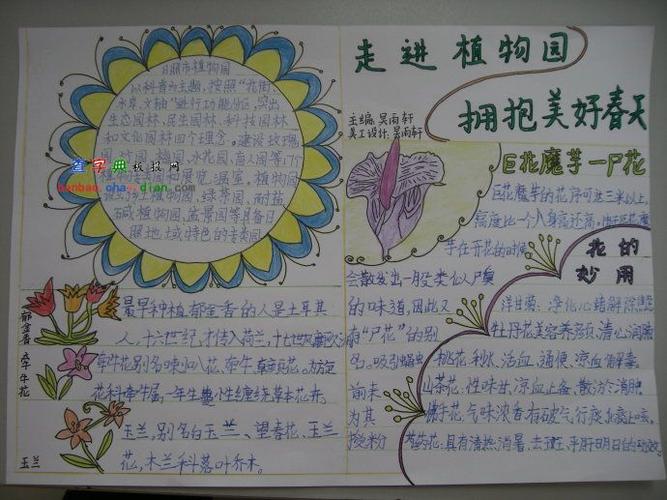 走进植物园
拥抱美好春天
主编:吴雨轩
美工设计:吴雨轩
日照市植物园
以科普为主题,按照“花街、
水岸、文轴”进行功能分区,突出
生态园林、民生园林、科技园林
和文化园林四个理念。建设玫瑰
园、水花园、盲人园等17个
植物 展览温室。植物园
植物园、绿茶园、耐盐
碱植物园、盆景园等具备日
照地域特色的专类园
查字典板报网
banbao.chazidian.com
巨花魔芋—尸花
巨花魔芋的花序可达三米以上,
高度比一个人身高还高,
芋在开花的时候,
会散发出一股类似尸臭
的味道,因此又
有“尸花”的别
名。吸引
前来
为其
授粉
花的
妙用
洋甘菊:净化心绪解除
牡丹花美容养颜,清心润
桃花,利水、活血、通便、凉血解毒
山茶花,性味甘、凉血止备、散淤消肿
佛手花,气味浓香有破气行
:具有清热、消暑、去 平肝明目的功效
郁金香
最早种植郁金香的人是土耳其
人,十六世纪,才传入荷兰,十七世纪
牵牛花
牵牛花别名喇叭花、牵牛、朝颜花。为旋
花科牵牛属,一年生蔓性缠绕草本花卉。
玉兰
玉兰,别名白玉兰、望春花、玉兰
花,木兰科落叶乔木。